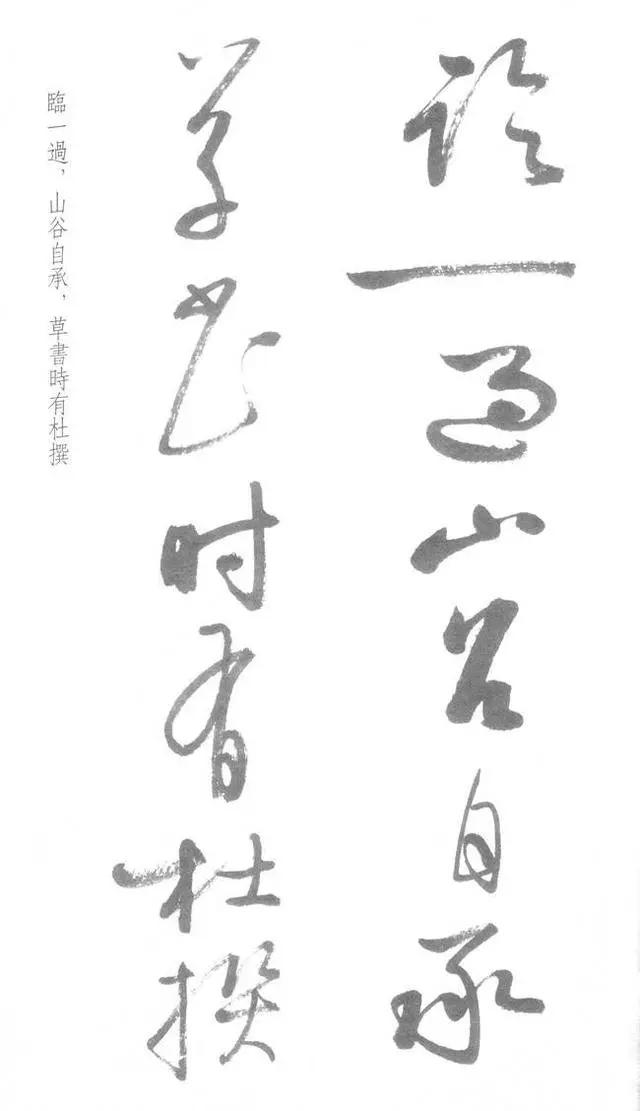 臨一過山谷自承
草書时有杜撰
臨一過，山谷自承，草書時有杜撰